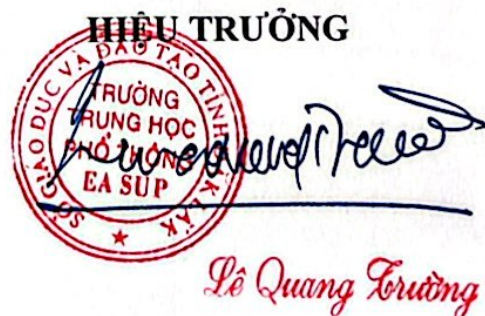 HIỆU TRƯỞNG
SỞ GIÁO DỤC VÀ ĐÀO TẠO TỈNH ĐẮK LẮK
TRƯỜNG
TRUNG HỌC
PHỔ THÔNG
EA SUP
Lê Quang Trường